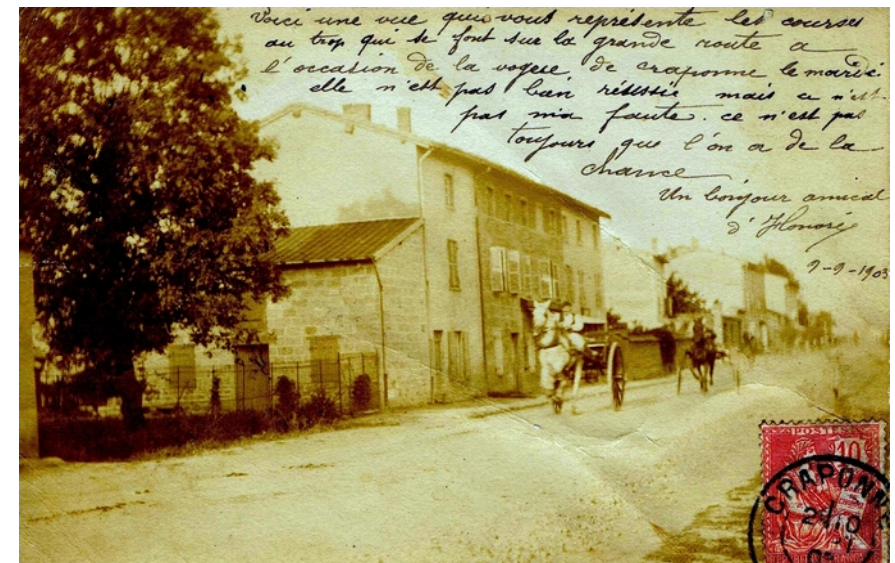 Voici une vue qui vous représente les courses
au trop qui se font sur la grande route a
l'occasion de la vogue de craponne le mardi
elle n'est pas bien réussie mais ce n'est
pas ma faute. ce n'est pas
toujours que l'on a de la
chance
Un bonjour amical
d'Honoré
9-9-1903
POSTES
10
CRAPONNE